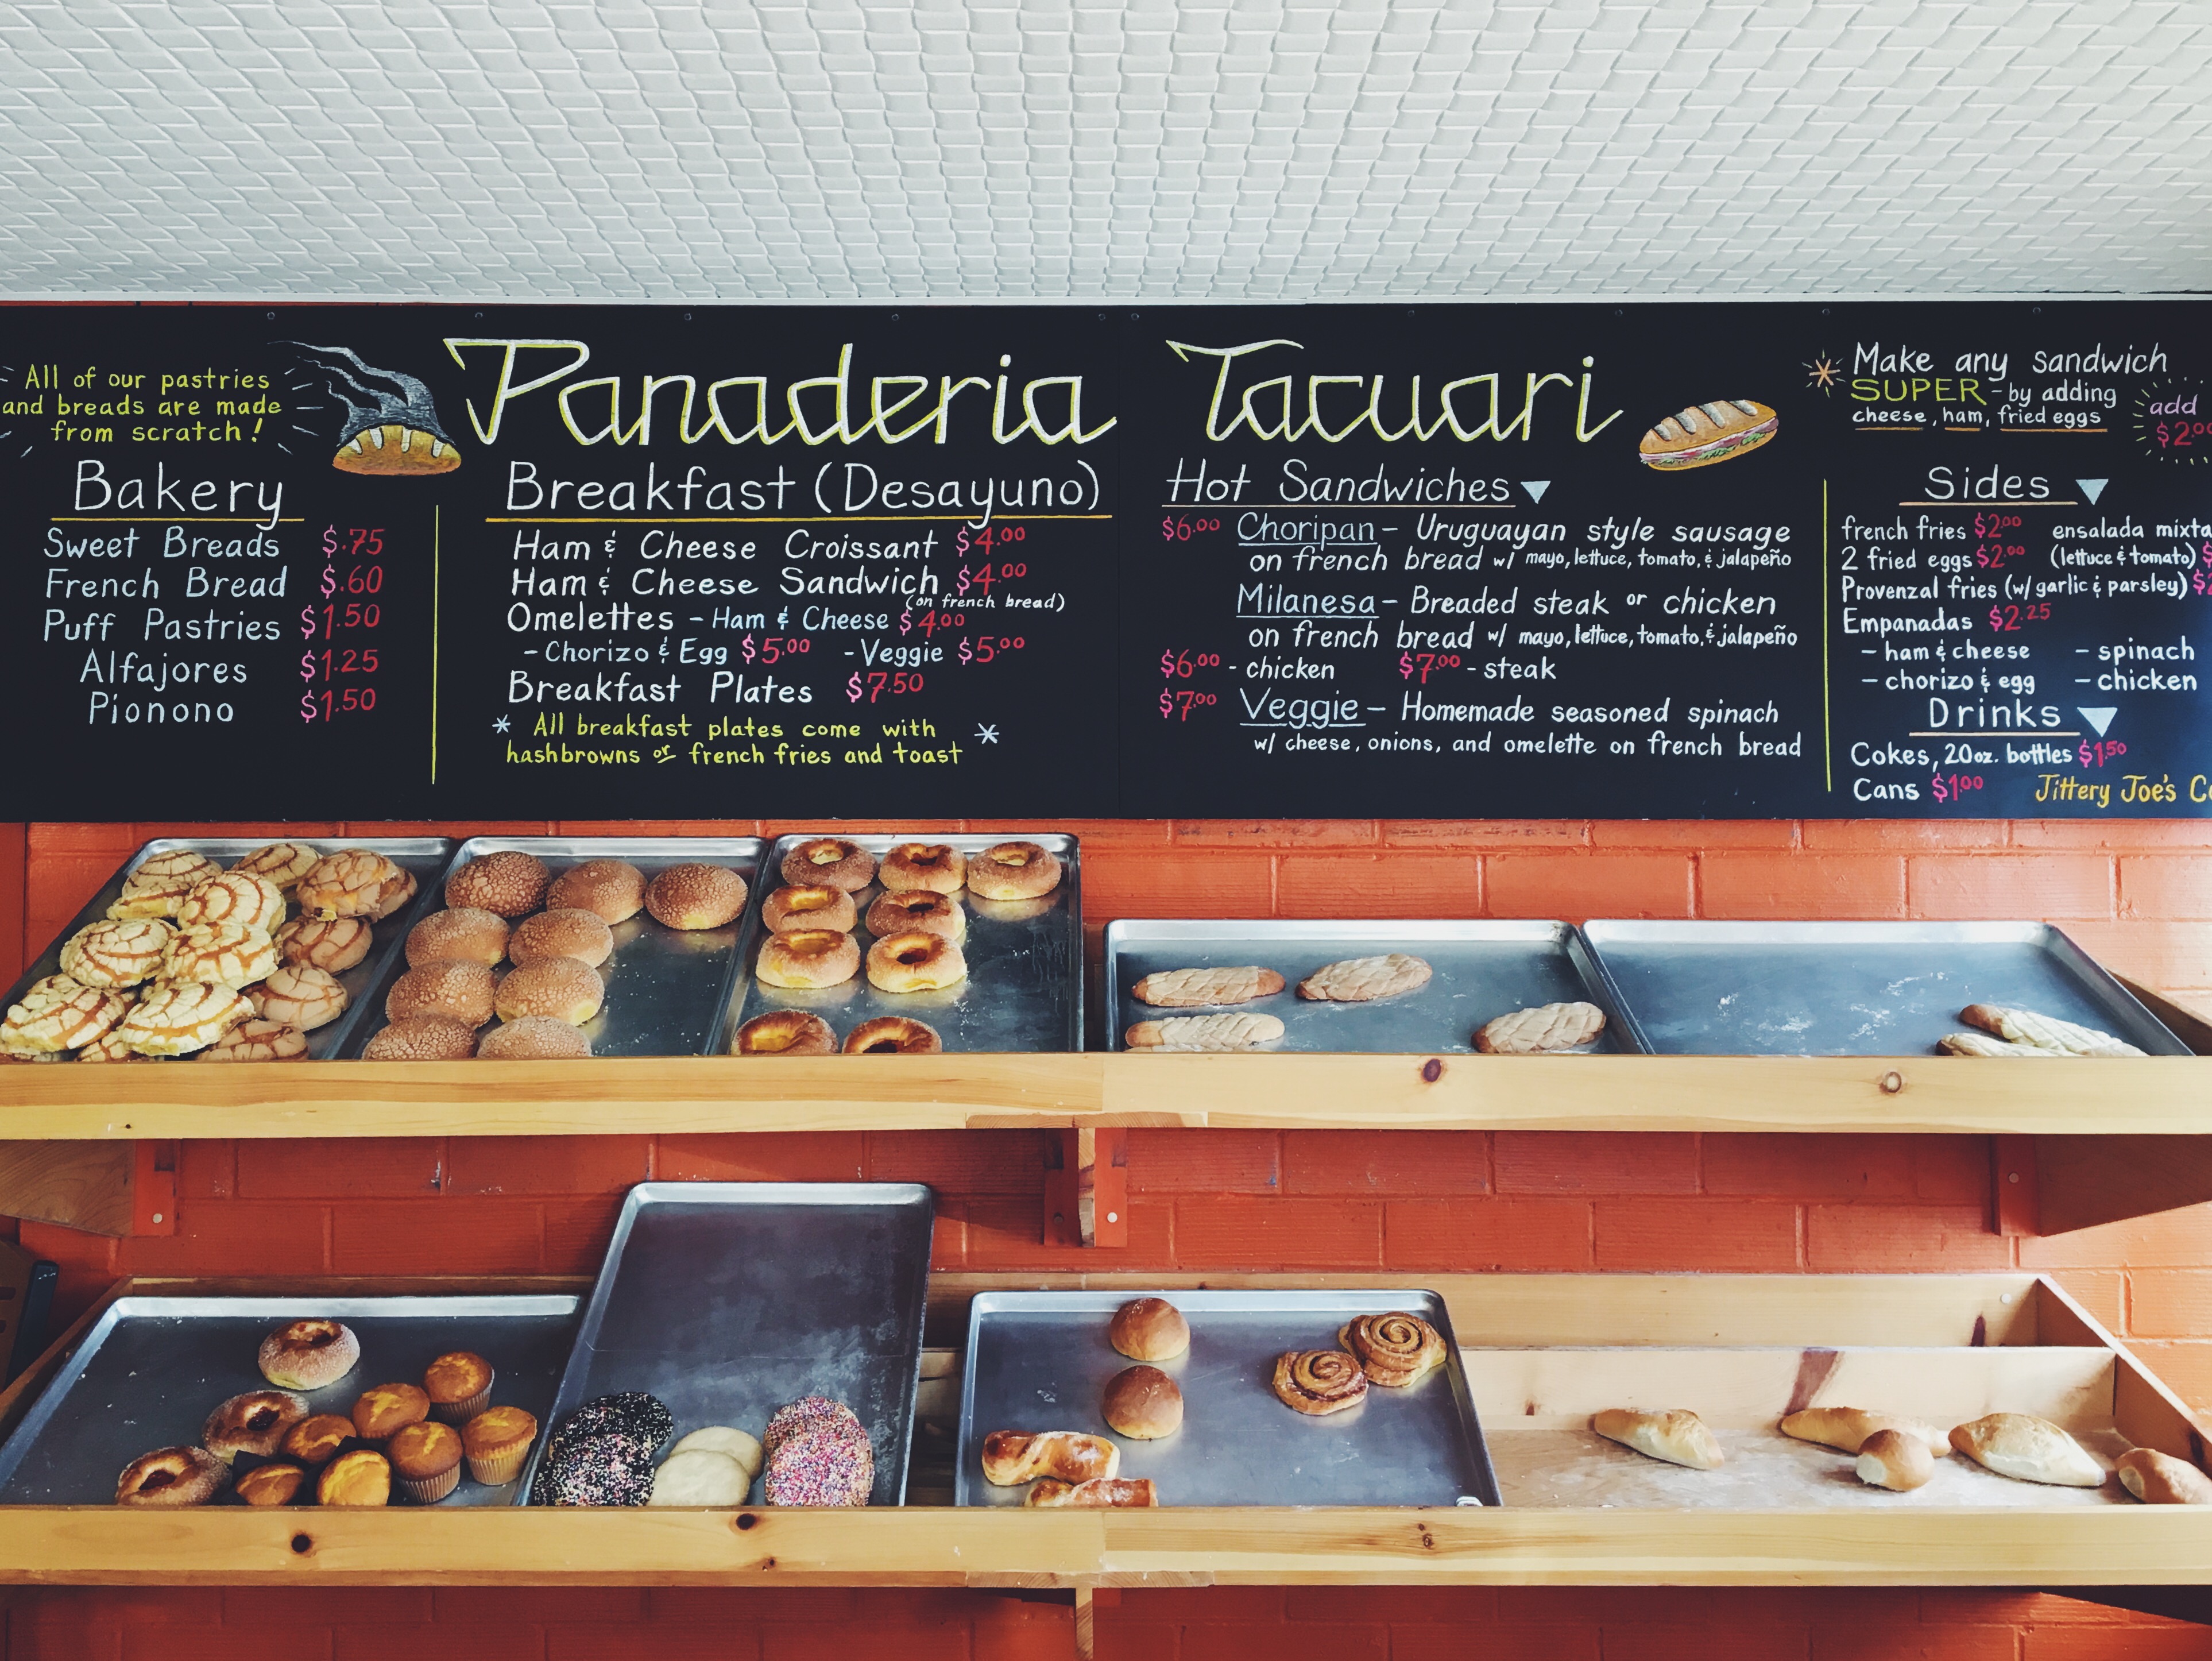 All of our pastries
and breads are made
from scratch!
Bakery
Sweet Breads $.75
French Bread $.60
Puff Pastries $1.50
Alfajores $1.25
Pionono $1.50
Panaderia Tacuari
Breakfast (Desayuno)
Ham & Cheese Croissant $4.00
Ham & Cheese Sandwich $4.00
(on french bread)
Omelettes - Ham & Cheese $4.00
- Chorizo & Egg $5.00 - Veggie $5.00
Breakfast Plates $7.50
* All breakfast plates come with *
hashbrowns or french fries and toast
Hot Sandwiches
$6.00 Choripan - Uruguayan style sausage
on french bread w/ mayo, lettuce, tomato, & jalapeño
Milanesa - Breaded steak or chicken
on french bread w/ mayo, lettuce, tomato, & jalapeño
$6.00 - chicken $7.00 - steak
$7.00 Veggie - Homemade seasoned spinach
w/ cheese, onions, and omelette on french bread
* Make any sandwich
SUPER - by adding
cheese, ham, fried eggs
add
$2.00
Sides
french fries $2.00 ensalada mixta
2 fried eggs $2.00 (lettuce & tomato) $
Provenzal fries (w/ garlic & parsley) $
Empanadas $2.25
- ham & cheese - spinach
- chorizo & egg - chicken
Drinks
Cokes, 20oz. bottles $1.50
Cans $1.00 Jittery Joe's